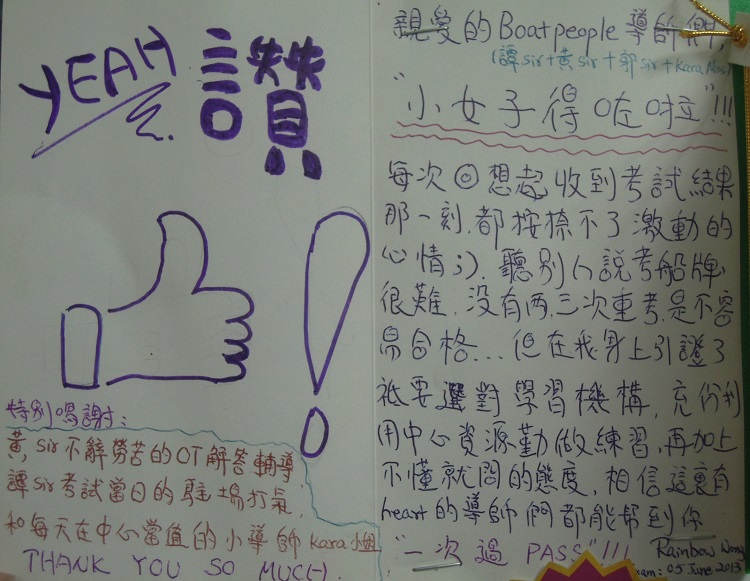 YEAH
讚
!
特別鳴謝:
黃 Sir 不辭勞苦的OT解答輔導
譚Sir考試當日的駐場打氣,
和每天在中心當值的小導師 Kara小姐
THANK YOU SO MUCH.
親愛的 Boatpeople 導師們,
(譚sir+黃sir+郭sir+Kara Miss)
"小女子得咗啦"!!!
每次回想起收到考試結果
那一刻,都按捺不了激動的
心情;). 聽別人說考船牌
很難,没有兩,三次重考是不容
易合格...但在我身上引證了
祗要選對學習機構,充份利
用中心資源勤做練習,再加上
不懂就問的態度,相信這裏有
heart的導師們都能幫到你
"一次過 PASS"!!!
Rainbow Wong
: 05 June 2013